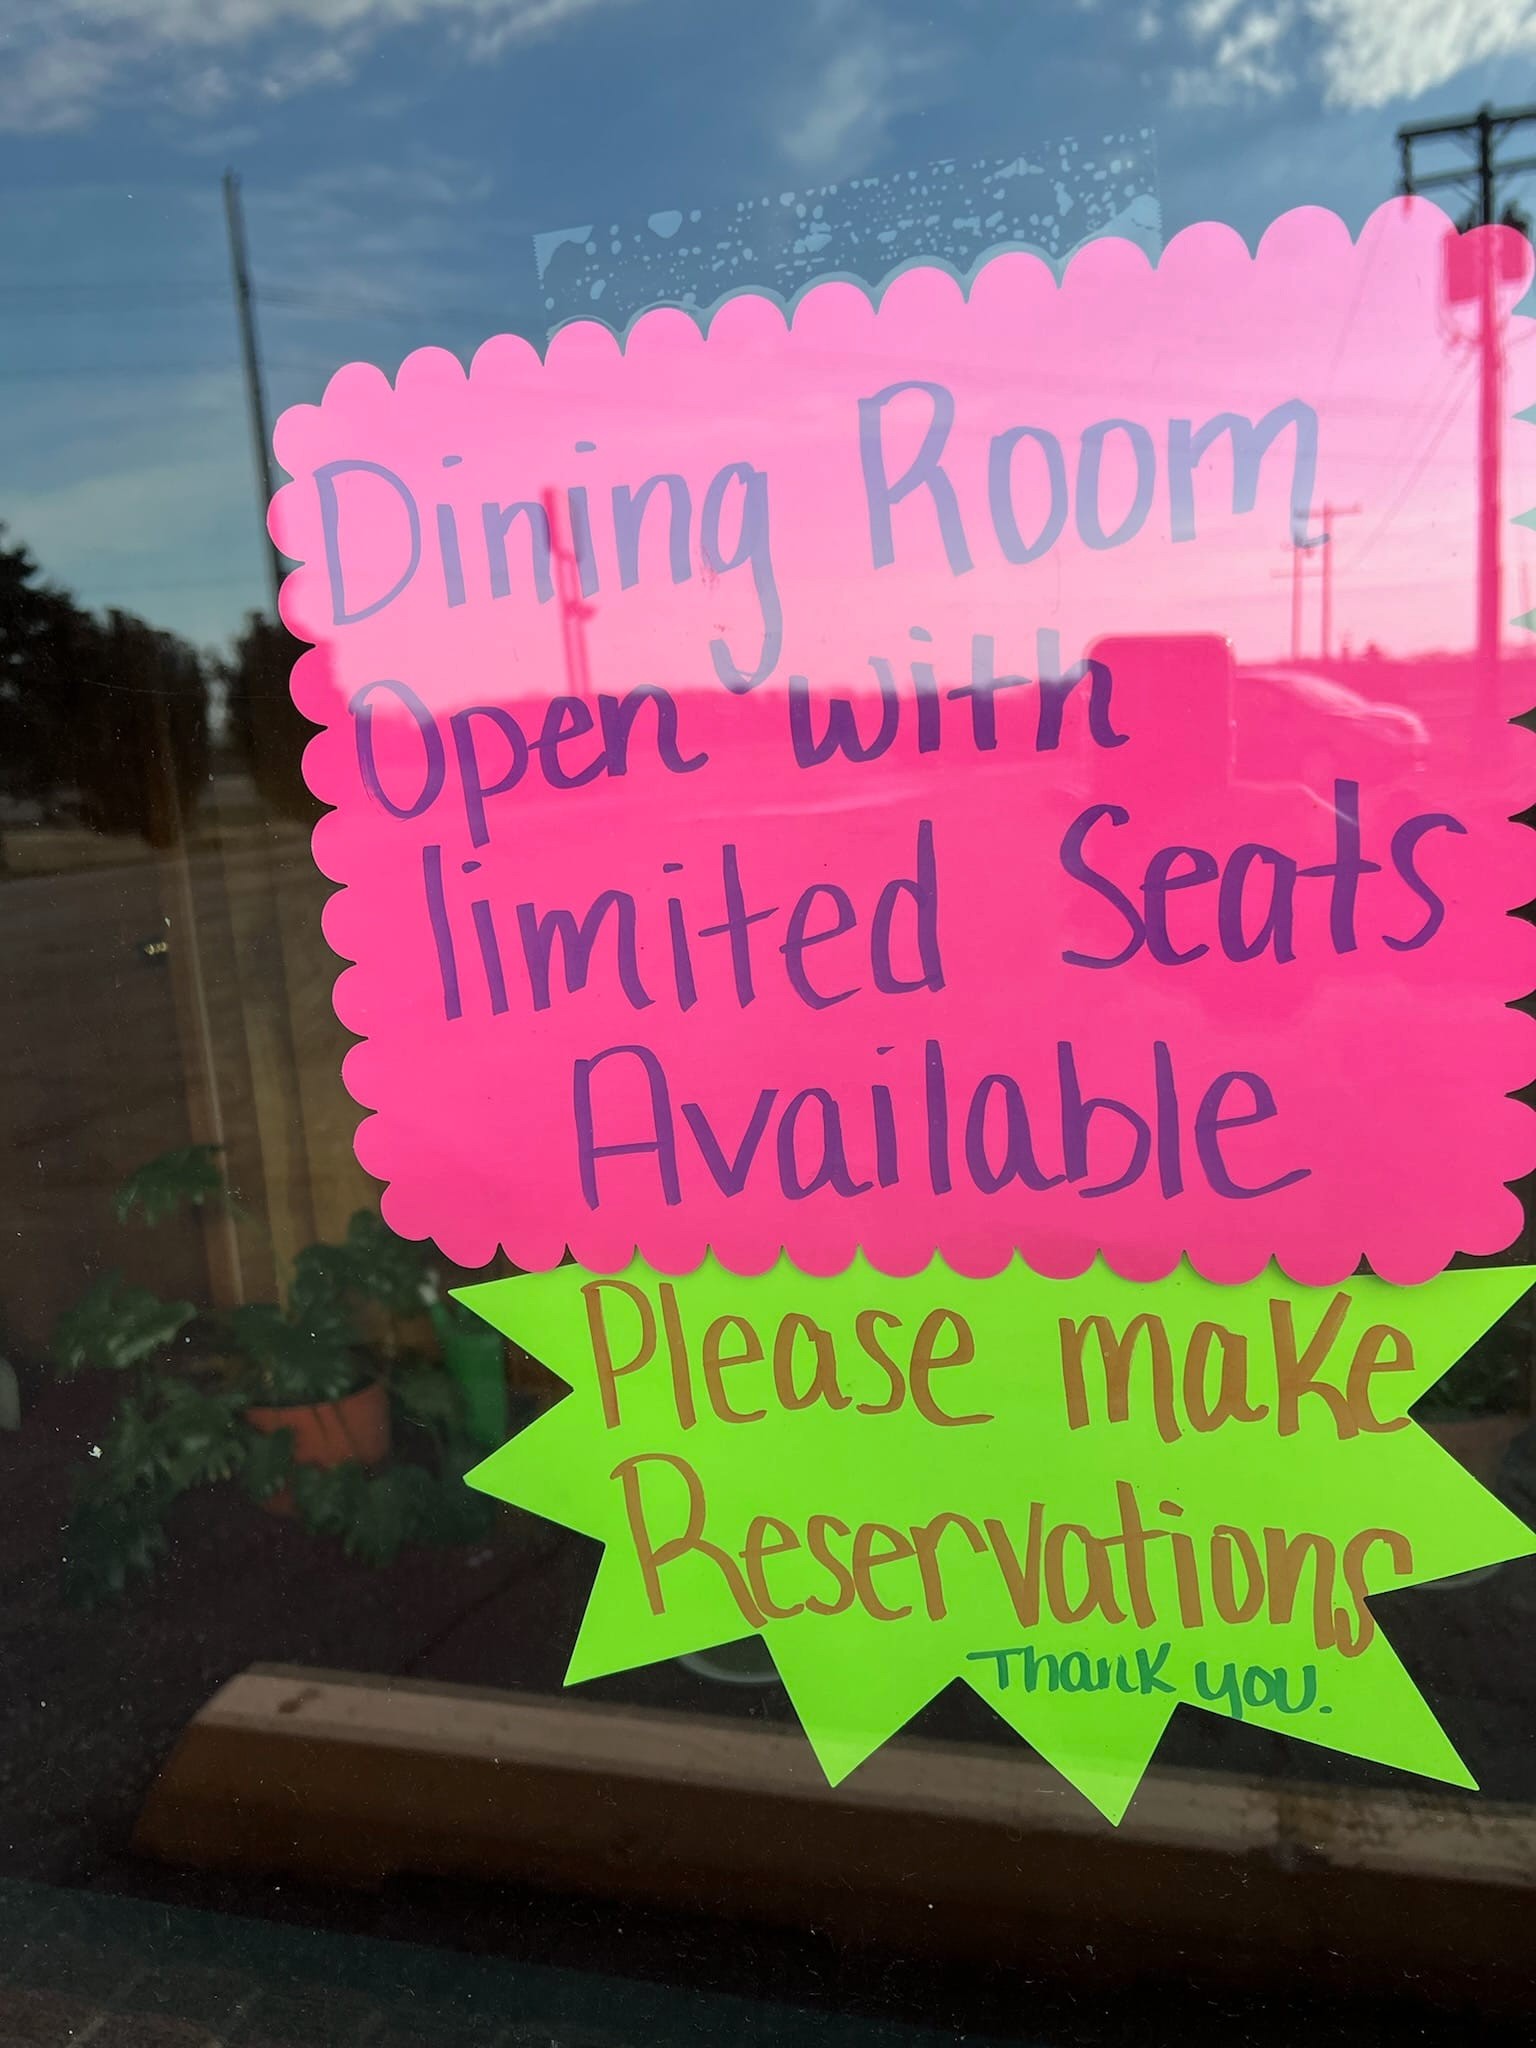 Dining Room
Open with
limited Seats
Available
Please make
Reservations
Thank you.